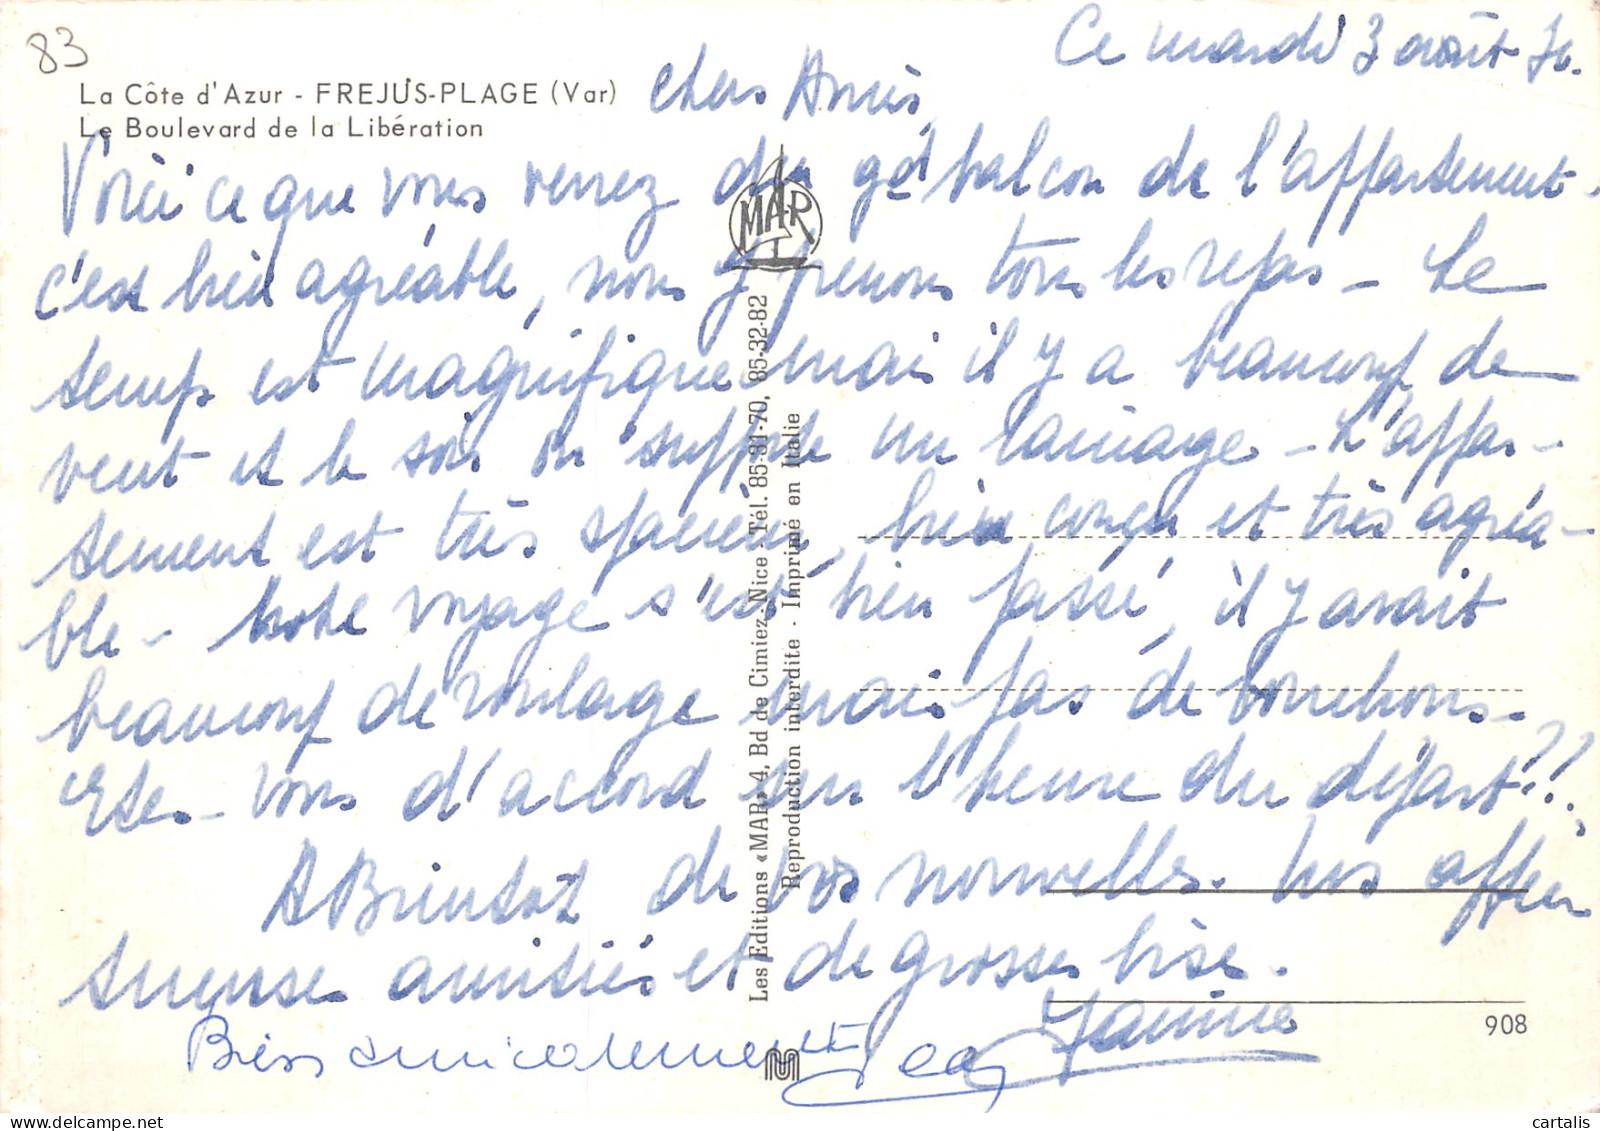 83
Ce mardi 3 août 76.
La Côte d'Azur - FREJUS-PLAGE (Var)
Le Boulevard de la Libération
Chers Amis,
Voici ce que vous verrez du gd balcon de l'appartement.
c'est bien agréable, nous y prenons tous les repas - Le
temps est magnifique mais il y a beaucoup de
vent et le soir on supporte un lainage - L'appar-
tement est très spacieux, bien conçu et très agréa-
ble - Notre voyage s'est bien passé, il y avait
beaucoup de roulage mais pas de bouchons -
Etes-vous d'accord sur l'heure du départ??
A Bientôt de vos nouvelles. Nos affec
tueuses amitiés et de grosses bises.
Janine
Bien amicalement Jean
MAR
Les Editions «MAR» 4, Bd de Cimiez - Nice - Tél. 85-91-70, 85-32-82
Reproduction interdite - Imprimé en Italie
M
908
cartalis
www.delcampe.net